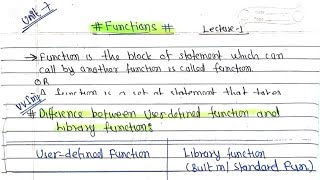 Unit-7
# Functions #
Lecture-1
→ Function is the block of statement which can
call by another function is called function.
OR
A function is a set of statement that takes
VVImp
# Difference between Userdefined function and
Library function:
User-defined Function
Library function
(Built in/ Standard Fun)